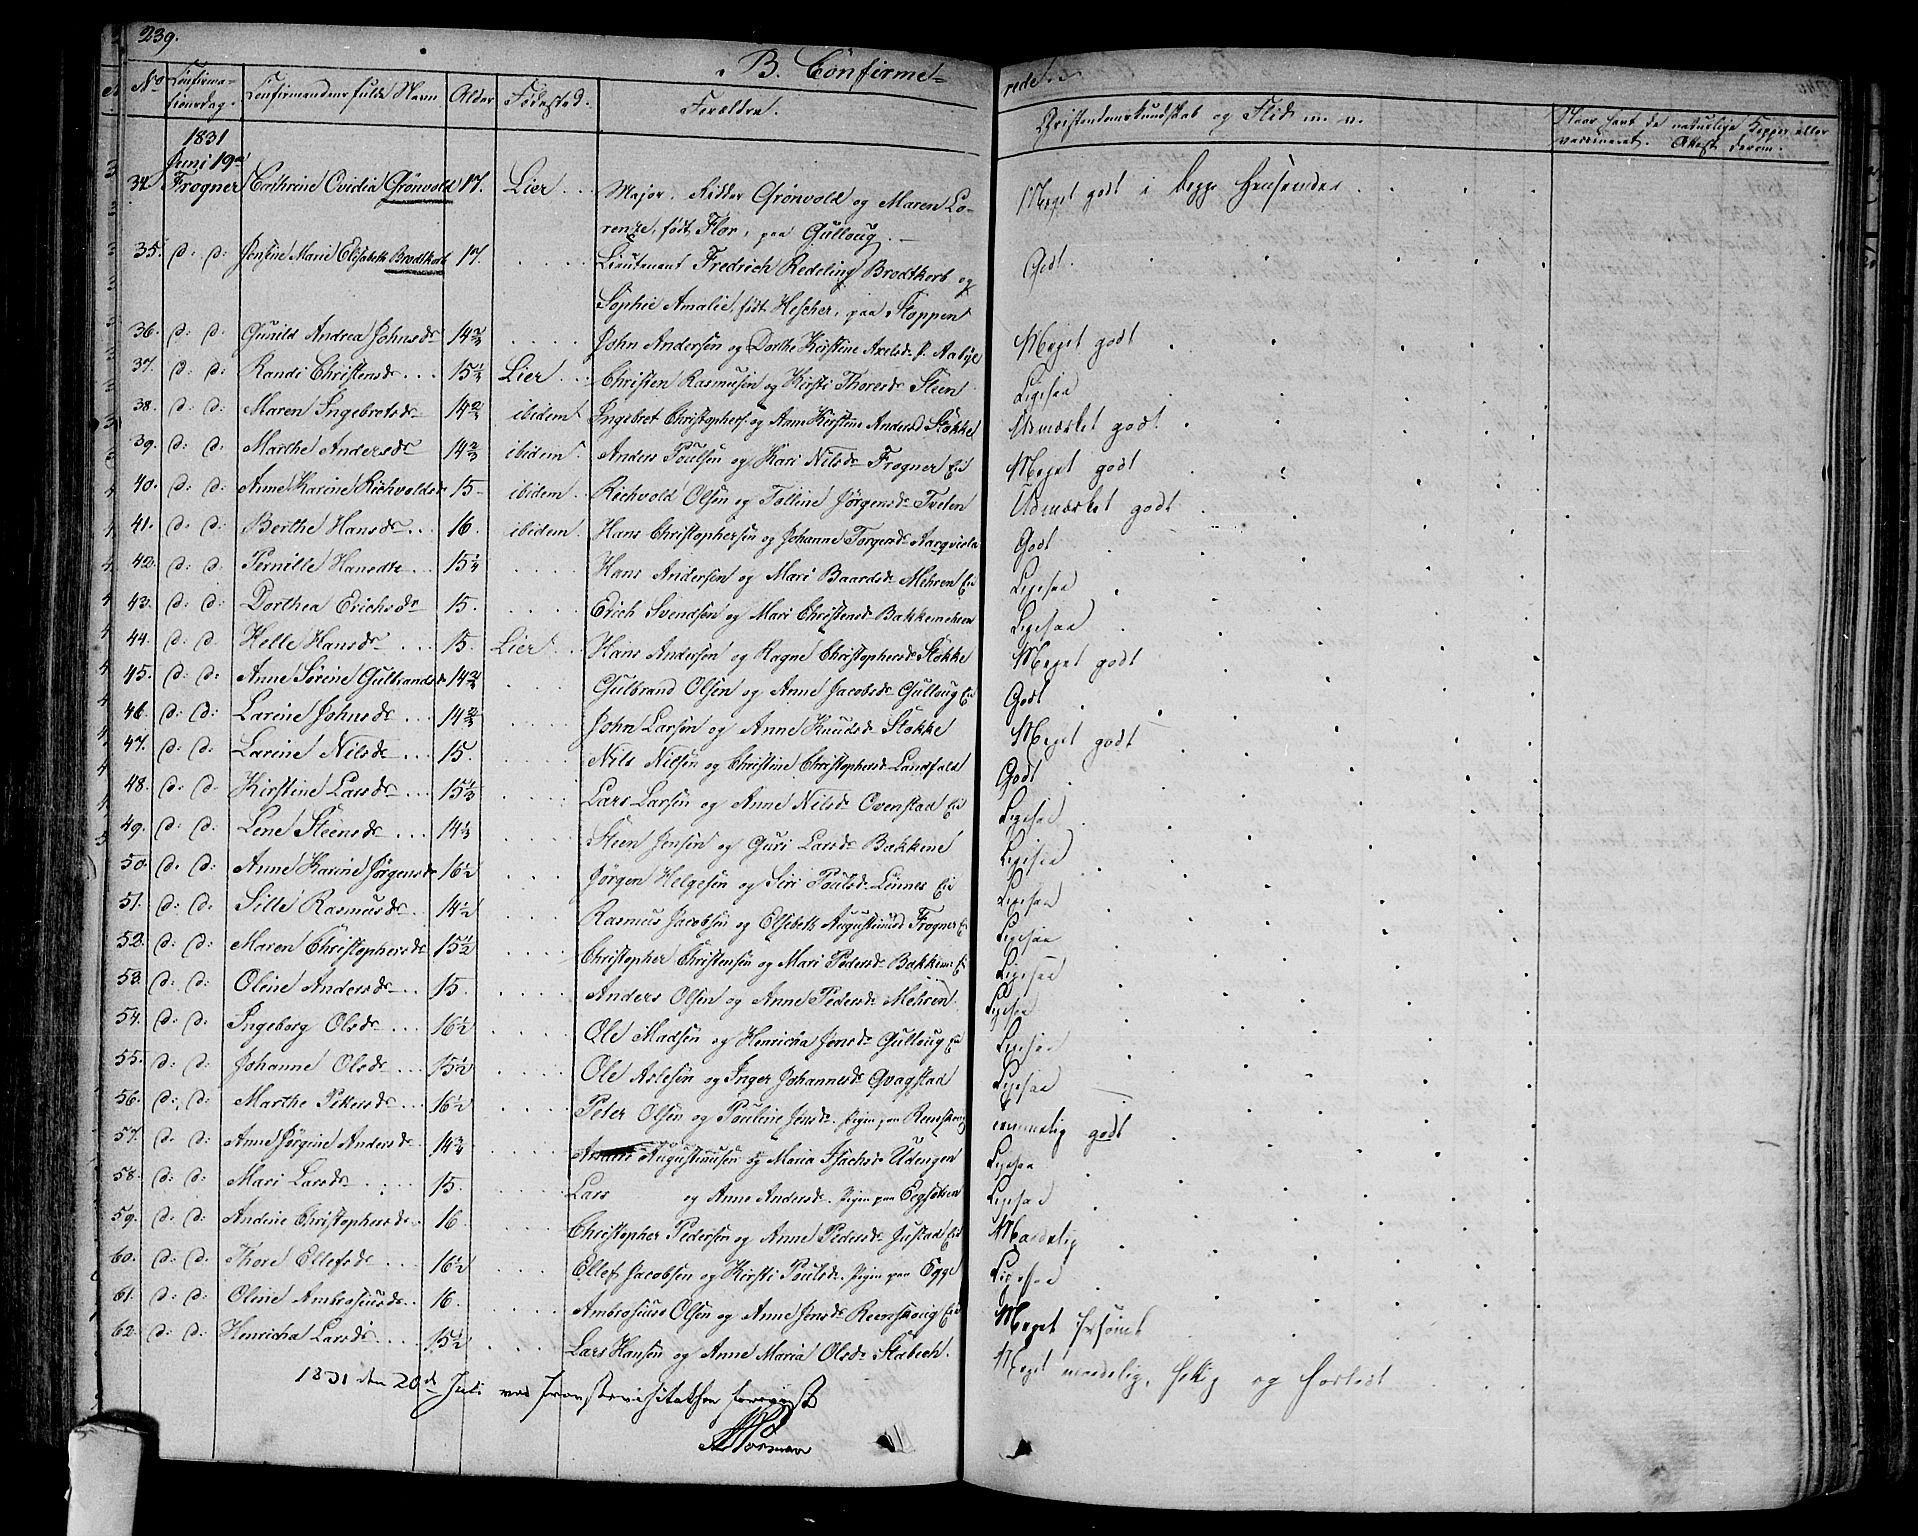 239.
B. Confirme=
rede.
No Confirma=tionsdag. Confirmandens fulde Navn Alder Fødested. Forældre. Christendomskundskab og Flid m. v. Naar havt de naturlige Kopper eller vaccineret. Attest derom.
1831
Juni 19de
34. Frogner Cathrine Ovidia Grönvold 17. Lier Major, Ridder Grönvold og Maren Lo- Meget godt i begge Henseender
renze, født Flor, paa Gulloug.
35. d: d: Jensine Marie Elisabeth Brodtkorb 17. Lieutenant Fredrich Redeling Brodtkorb og Godt.
Sophie Amalie, født Hescher, paa Stoppen
36. d: d: Gunild Andrea Johnsdr 14 2/3 John Andersen og Dorthe Kirstine Axelsdr p. Aabye Meget godt
37. d: d: Randi Christensdr 15 1/2 Lier Christen Rasmusen og Kirsti Thoresdr Steen Ligesaa
38. d: d: Maren Ingebretsdr 14 2/3 ibidem Ingebret Christophers. og Anne Kirstine Andersd Stokke Udmærket godt
39. d: d: Marthe Andersdr 14 2/3 ibidem Anders Poulsen og Kari Nilsdr Frogner Eie Meget godt
40. d: d: Anne Karine Richvoldsdr 15 ibidem Richvold Olsen og Talline Jørgensdr Tveten Udmærket godt
41. d: d: Berthe Hansdr 16. ibidem Hans Christophersen og Johanne Torgersdr Aarqvisla Godt
42. d: d: Pernille Hansdtr 15 1/4 Hans Andersen og Mari Baardsdr Mehren Eie Ligesaa
43. d: d: Dorthea Erichsdr 15. Erich Svendsen og Mari Christensdr Bakkemehren Ligesaa
44. d: d: Helle Hansdr 15. Lier Hans Andersen og Ragne Christophersdr Stokke Meget godt
45. d: d: Anne Sørine Gulbrandsdr 14 3/4 Gulbrand Olsen og Anne Jacobsdr Gulloug Eie Godt
46. d: d: Larine Johnsdr 14 2/3 John Larsen og Anne Knudsdr Stokke Meget godt
47. d: d: Larine Nilsdr 15. Nils Nilsen og Christine Christophersdr Landfald Godt
48. d: d: Kirstine Larsdr 15 1/3 Lars Larsen og Anne Nilsdr Ovenstad Eie Ligesaa
49. d: d: Lene Steensdr 14 1/3 Steen Jensen og Guri Larsdr Bakkene Ligesaa
50. d. d: Anne Karine Jørgensdr 16 1/2 Jørgen Helgesen og Siri Poulsdr Linnes Eie Ligesaa
51. d: d. Sille Rasmusdr 14 1/2 Rasmus Jacobsen og Elsebeth Augustinusd Frogner E Ligesaa
52. d: d: Maren Christophersdr 15 1/2 Christopher Christensen og Mari Pedersdr Bakken Ligesaa
53. d: d: Oline Andersdr 15. Anders Olsen og Anne Pedersdr Mehren Ligesaa
54. d: d: Ingeborg Olsdr 16 1/2 Ole Madsen og Henricha Jensdr Gulloug Eie Ligesaa
55. d: d: Johanne Olsdr 15 1/2 Ole Aslesen og Inger Johannesdr Qvagstad Ligesaa
56. d: d: Marthe Petersdr 16 1/2 Peter Olsen og Pouline Jensdr. Pigen paa Reenskoug temmelig godt
57. d: d: Anne Jørgine Andersdr 14 3/4 Anders Augustinusen og Maria Isachsdr Udengen Ligesaa
58. d: d: Mari Larsdr 15. Lars og Anne Andersdr. Pigen paa Eegsetren Ligesaa
59. d. d: Andine Christophersdr 16 Christopher Pedersen og Anne Pedersdr Justad Eie Maadelig
60. d: d: Thore Ellefsdr 16 1/2 Ellef Jacobsen og Kirsti Poulsdr. Pigen paa Egge Ligesaa
61. d: d: Oline Ambrosiusdr 16. Ambrosius Olsen og Anne Jensdr Reenskoug Eie Meget forsømt
62. d: d: Henricha Larsdr 15 1/2 Lars Hansen og Anne Maria Olsdr Stabech. Meget maadelig, og
1831 den 20de Juli ved Provstevisitatsen foreviist